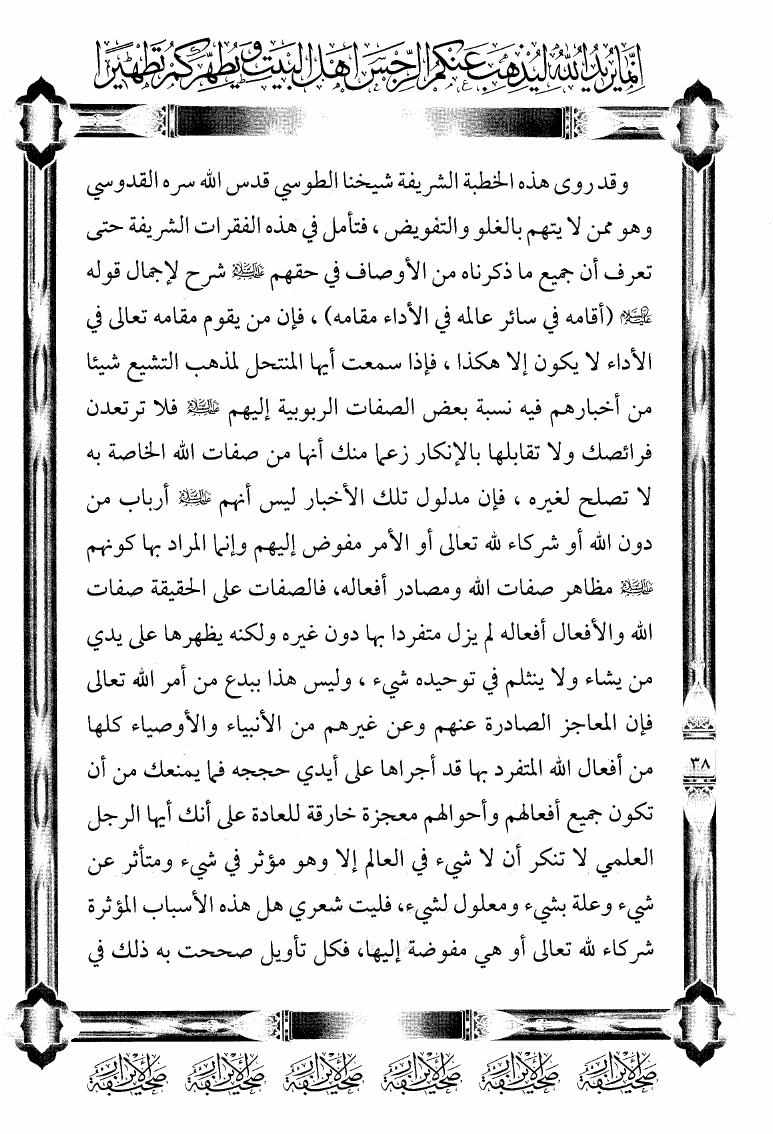 إنما يريد الله ليذهب عنكم الرجس أهل البيت ويطهركم تطهيرا
وقد روى هذه الخطبة الشريفة شيخنا الطوسي قدس الله سره القدوسي
وهو ممن لا يتهم بالغلو والتفويض ، فتأمل في هذه الفقرات الشريفة حتى
تعرف أن جميع ما ذكرناه من الأوصاف في حقهم عليهم السلام شرح لإجمال قوله
عليه السلام (أقامه في سائر عالمه في الأداء مقامه) ، فإن من يقوم مقامه تعالى في
الأداء لا يكون إلا هكذا ، فإذا سمعت أيها المنتحل لمذهب التشيع شيئا
من أخبارهم فيه نسبة بعض الصفات الربوبية إليهم عليهم السلام فلا ترتعدن
فرائصك ولا تقابلها بالإنكار زعما منك أنها من صفات الله الخاصة به
لا تصلح لغيره ، فإن مدلول تلك الأخبار ليس أنهم عليهم السلام أرباب من
دون الله أو شركاء لله تعالى أو الأمر مفوض إليهم وإنما المراد بها كونهم
عليهم السلام مظاهر صفات الله ومصادر أفعاله، فالصفات على الحقيقة صفات
الله والأفعال أفعاله لم يزل متفردا بها دون غيره ولكنه يظهرها على يدي
من يشاء ولا ينثلم في توحيده شيء ، وليس هذا ببدع من أمر الله تعالى
فإن المعاجز الصادرة عنهم وعن غيرهم من الأنبياء والأوصياء كلها
من أفعال الله المتفرد بها قد أجراها على أيدي حججه فما يمنعك من أن
٣٨
تكون جميع أفعالهم وأحوالهم معجزة خارقة للعادة على أنك أيها الرجل
العلمي لا تنكر أن لا شيء في العالم إلا وهو مؤثر في شيء ومتأثر عن
شيء وعلة بشيء ومعلول لشيء، فليت شعري هل هذه الأسباب المؤثرة
شركاء لله تعالى أو هي مفوضة إليها، فكل تأويل صححت به ذلك في
صحيفة الأبرار صحيفة الأبرار صحيفة الأبرار صحيفة الأبرار صحيفة الأبرار صحيفة الأبرار